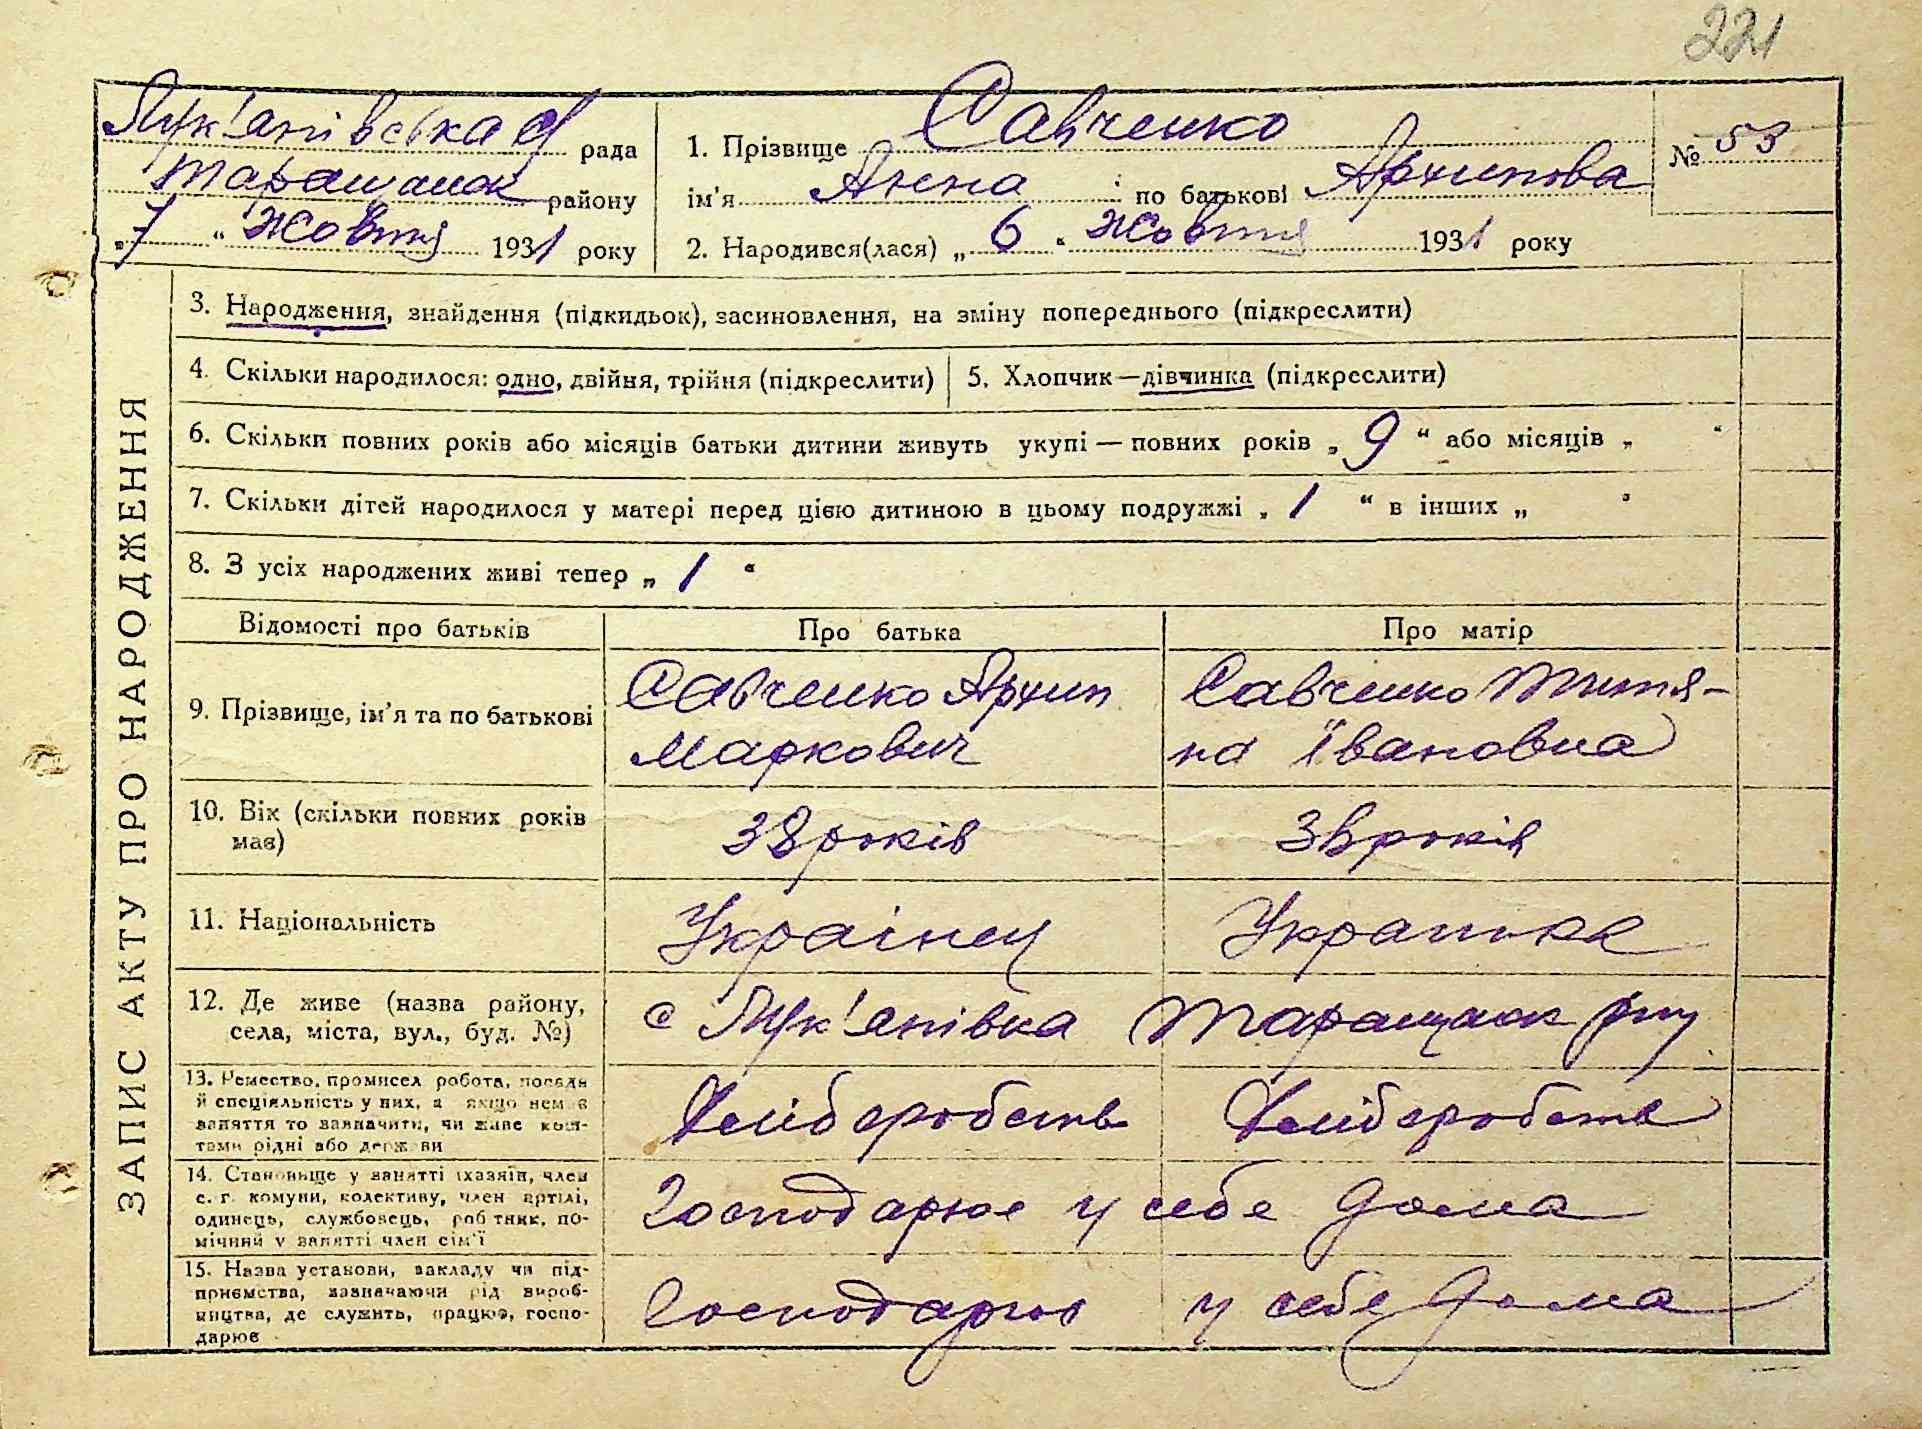 221
Лук'янівська с/ рада
Таращанск району
„7“ жовтня 1931 року
1. Прізвище Савченко
ім'я Анна по батькові Архипова
2. Народився(лася) „6“ жовтня 1931 року
№ 53
ЗАПИС АКТУ ПРО НАРОДЖЕННЯ
3. Народження, знайдення (підкидьок), засиновлення, на зміну попереднього (підкреслити)
4. Скільки народилося: одно, двійня, трійня (підкреслити)
5. Хлопчик—дівчинка (підкреслити)
6. Скільки повних років або місяців батьки дитини живуть укупі — повних років „9“ або місяців „ “
7. Скільки дітей народилося у матері перед цією дитиною в цьому подружжі „1“ в інших „ “
8. З усіх народжених живі тепер „1“
Відомості про батьків Про батька Про матір
9. Прізвище, ім'я та по батькові
Савченко Архип
Маркович
Савченко Титя-
на Івановна
10. Вік (скільки повних років
має)
38 років
років
11. Національність
Українец
Украінка
12. Де живе (назва району,
села, міста, вул., буд. №)
с Лук'янівка Таращанск р-ну
13. Ремество, промисел робота, посада
й спеціяльність у них, а якщо немає
заняття то зазначити, чи живе кош-
тами рідні або держави
Хлібаробств
Хлібаробств
14. Становище у занятті (хазяїн, член
с. г. комуни, колективу, член артілі,
одинець, службовець, робітник, по-
мічний у занятті член сім'ї
Господарює у себе дома
15. Назва установи, закладу чи під-
приємства, зазначаючи рід вироб-
ництва, де служить, працює, госпо-
дарює
Господарює у себе дома